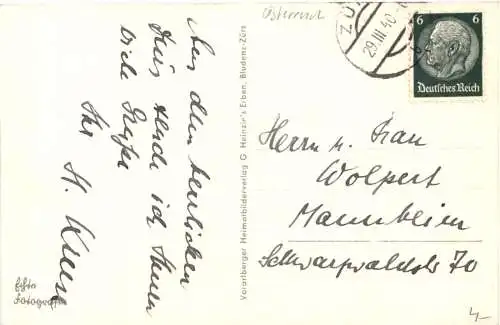 Österreich
Aus dem herrlichen
Zürs sende ich Ihnen
viele Grüße
Ihr H. Kruse
Echte
Fotografie
Vorarlberger Heimatbilderverlag C. Heinzle's Erben, Bludenz-Zürs
ZÜR
29.III.40
6 6
Deutsches Reich
Herrn u. Frau
Wolpert
Mannheim
Schwarzwaldstr 70
4-